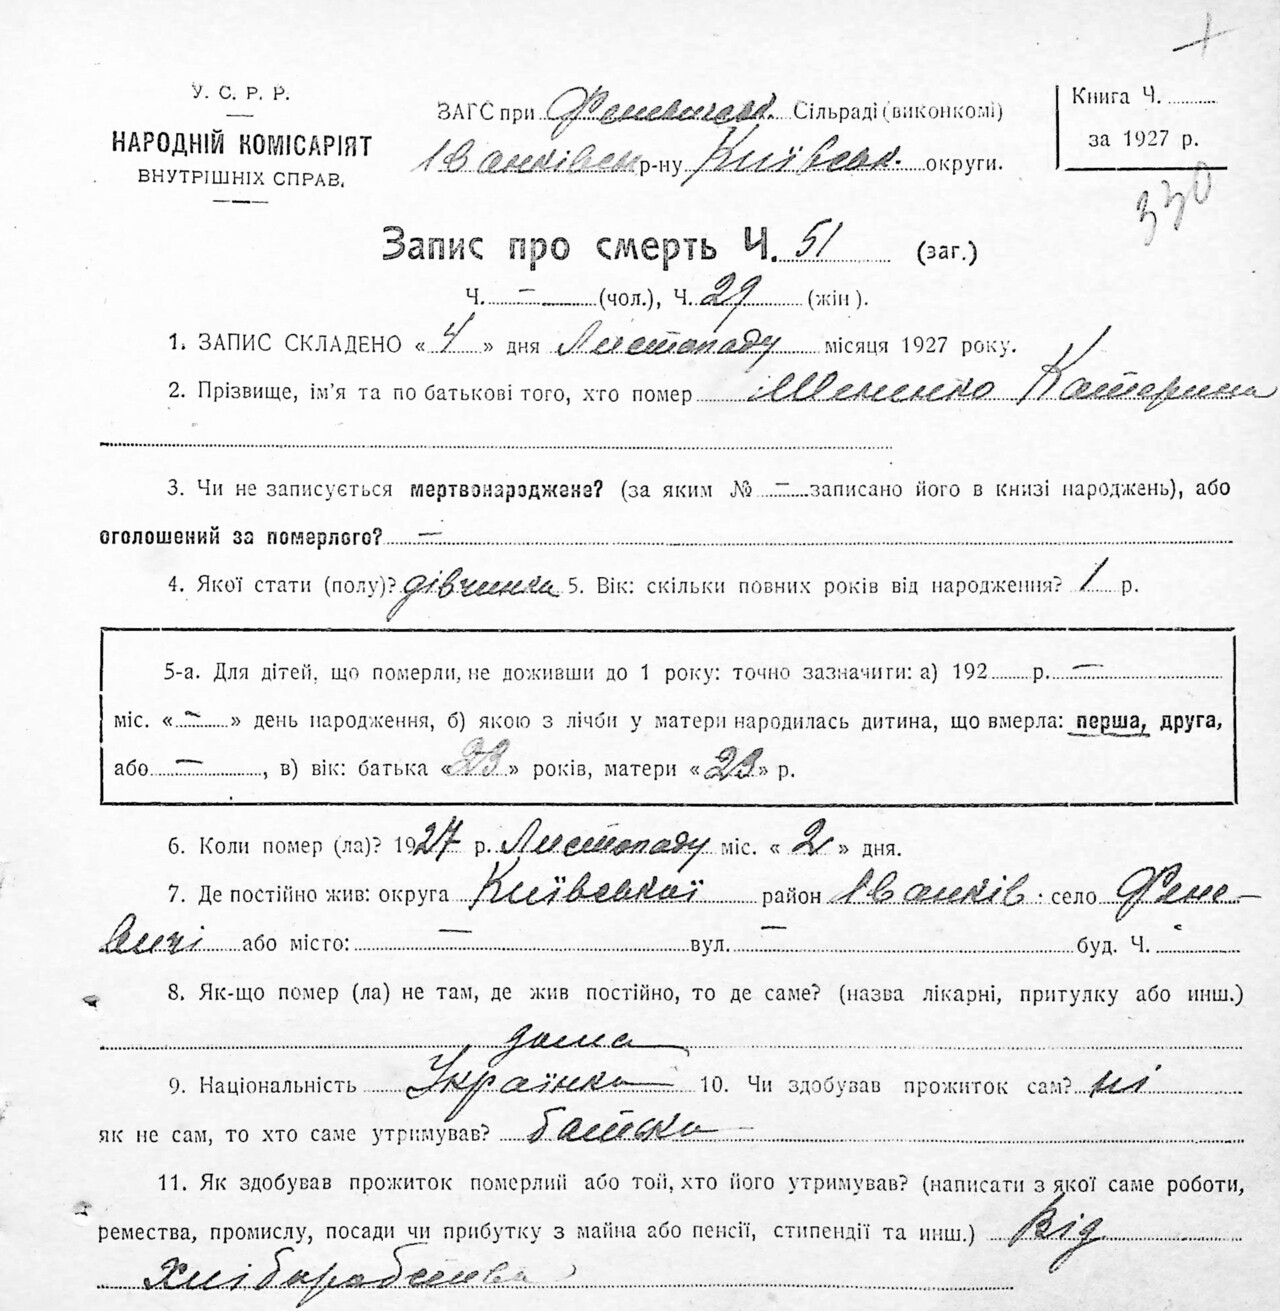 У. С. Р. Р.
НАРОДНІЙ КОМІСАРІЯТ
ВНУТРІШНІХ СПРАВ.
ЗАГС при Феневицьк. Сільраді (виконкомі)
Іванківськ р-ну Київськ. округи.
Книга Ч.
за 1927 р.
330
Запис про смерть Ч. 51 (заг.)
Ч. – (чол.), Ч. 29 (жін).
1. ЗАПИС СКЛАДЕНО « 4 » дня Листопаду місяця 1927 року.
2. Прізвище, ім'я та по батькові того, хто помер Катерина
3. Чи не записується мертвонароджене? (за яким № – записано його в книзі народжень), або
оголошений за померлого? –
4. Якої стати (полу)? дівчинка 5. Вік: скільки повних років від народження? 1 р.
5-а. Для дітей, що померли, не доживши до 1 року: точно зазначити: а) 192 р. –
міс. « – » день народження, б) якою з лічби у матери народилась дитина, що вмерла: перша, друга,
або –, в) вік: батька « 23 » років, матери « 23 » р.
6. Коли помер (ла)? 1927 р. Листопаду міс. « 2 » дня.
7. Де постійно жив: округа Київської район Іванків село Фене-
вичі або місто: – вул. – буд. Ч. –
8. Як-що помер (ла) не там, де жив постійно, то де саме? (назва лікарні, притулку або инш.)
дома
9. Національність Українка 10. Чи здобував прожиток сам? ні
як не сам, то хто саме утримував? батько
11. Як здобував прожиток померлий або той, хто його утримував? (написати з якої саме роботи,
ремества, промислу, посади чи прибутку з майна або пенсії, стипендії та инш.) Від
Хліборобства